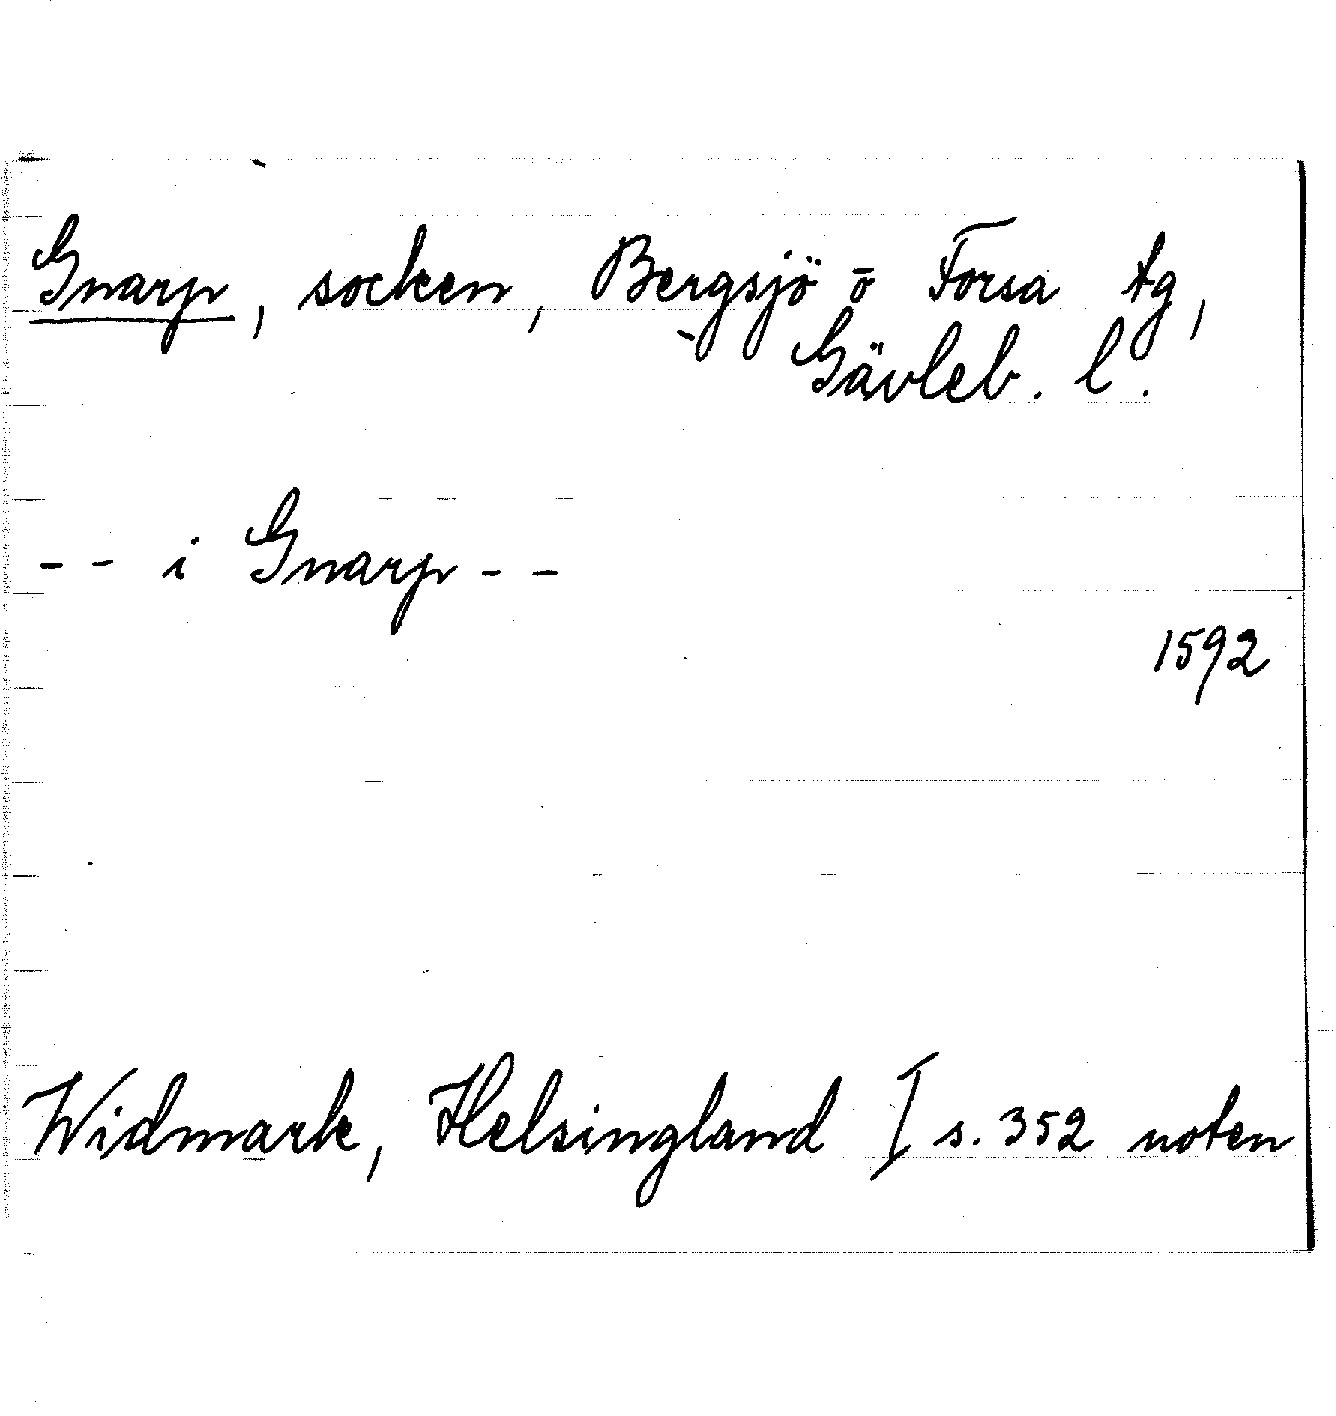 Gnarp, socken, Bergsjö o Forsa tg,
Gävleb. l.
-- i Gnarp --
1592
Widmark, Helsingland I s. 352 noten